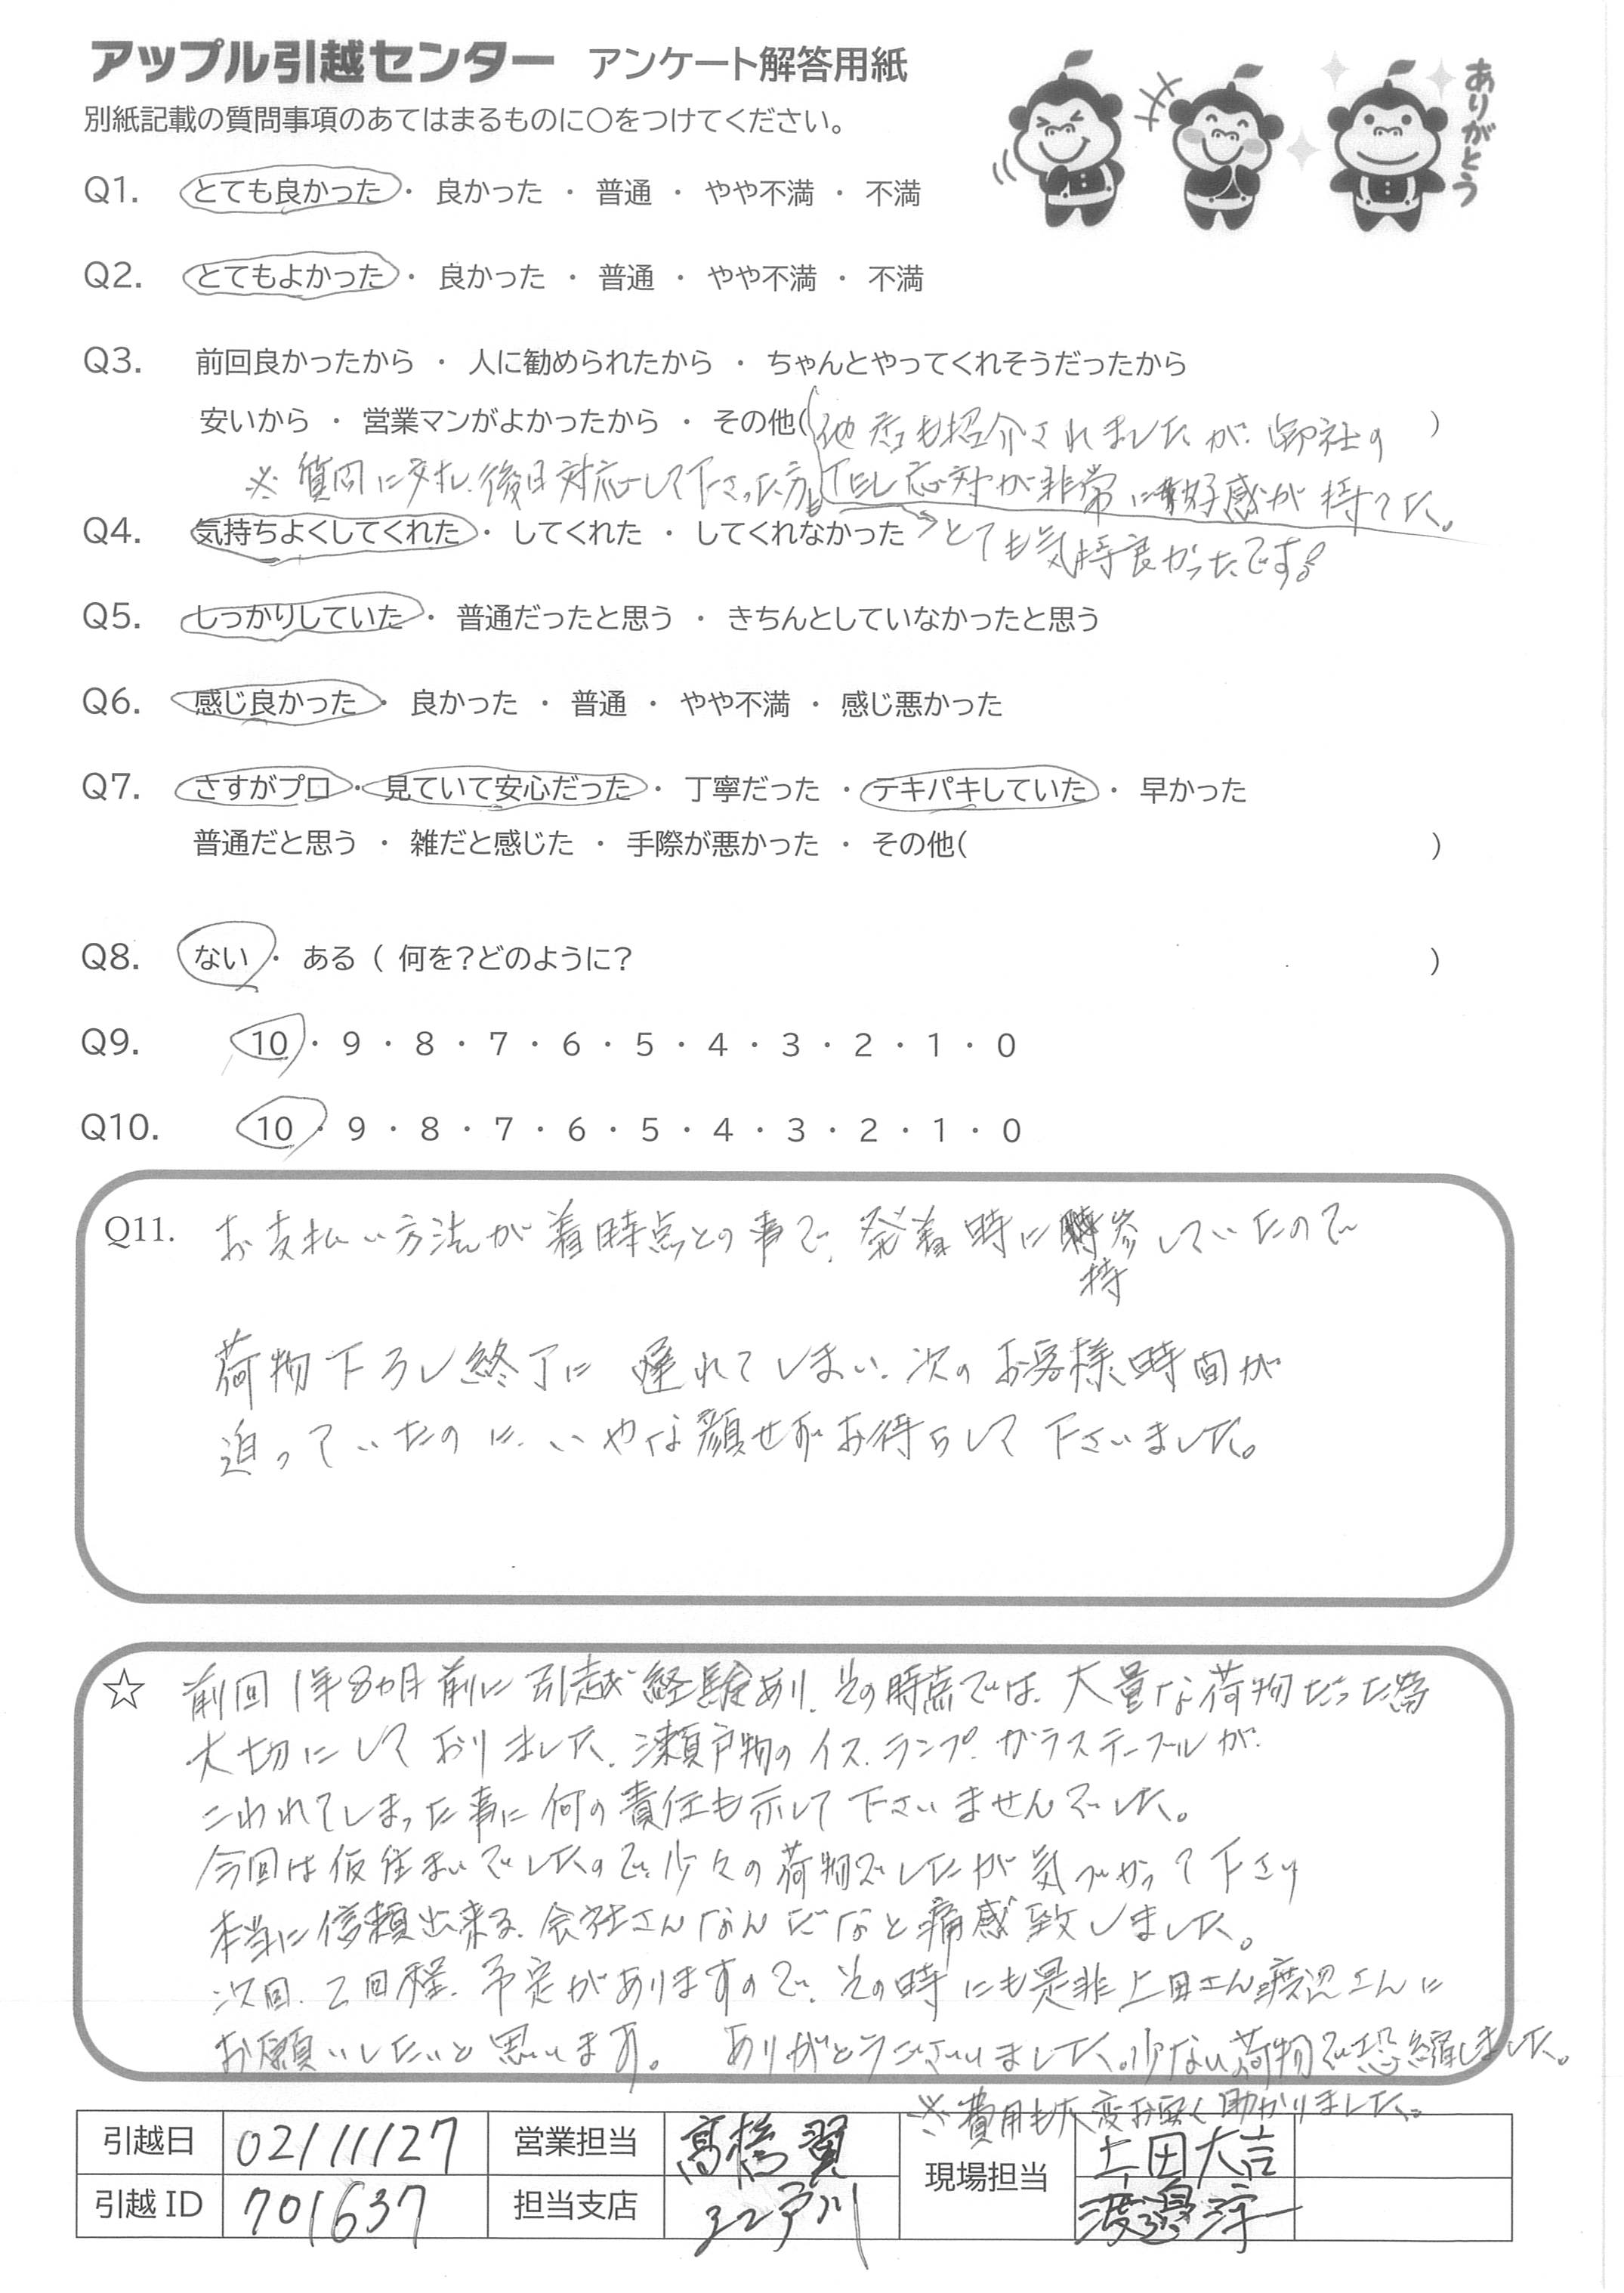 アップル引越センター アンケート解答用紙
ありがとう
別紙記載の質問事項のあてはまるものに〇をつけてください。
Q1. とても良かった ・ 良かった ・ 普通 ・ やや不満 ・ 不満
Q2. とてもよかった ・ 良かった ・ 普通 ・ やや不満 ・ 不満
Q3. 前回良かったから ・ 人に勧められたから ・ ちゃんとやってくれそうだったから
安いから ・ 営業マンがよかったから ・ その他( 他店も紹介されましたが、御社の )
TEL応対が非常に好感が持てた。
※質問に対し、後日対応して下さった方も
→とても気持良かったです。
Q4. 気持ちよくしてくれた ・ してくれた ・ してくれなかった
Q5. しっかりしていた ・ 普通だったと思う ・ きちんとしていなかったと思う
Q6. 感じ良かった ・ 良かった ・ 普通 ・ やや不満 ・ 感じ悪かった
Q7. さすがプロ ・ 見ていて安心だった ・ 丁寧だった ・ テキパキしていた ・ 早かった
普通だと思う ・ 雑だと感じた ・ 手際が悪かった ・ その他( )
Q8. ない ・ ある ( 何を?どのように? )
Q9. 10 ・ 9 ・ 8 ・ 7 ・ 6 ・ 5 ・ 4 ・ 3 ・ 2 ・ 1 ・ 0
Q10. 10 ・ 9 ・ 8 ・ 7 ・ 6 ・ 5 ・ 4 ・ 3 ・ 2 ・ 1 ・ 0
Q11. お支払い方法が着時点との事で、発着時に持参していたので
荷物下ろし終了に遅れてしまい、次のお客様時間が
迫っていたのに、いやな顔せずお待ちして下さいました。
☆ 前回1年8ヵ月前に引越経験あり、その時点では、大量な荷物だった為
大切にしておりました、瀬戸物のイス、ランプ、ガラステーブルが、
こわれてしまった事に何の責任も示して下さいませんでした。
今回は仮住まいでしたので、少々の荷物でしたが気づかって下さり
本当に信頼出来る、会社さんなんだなと痛感致しました。
次回、2回程、予定がありますので、その時にも是非上田さん渡辺さんに
お願いしたいと思います。 ありがとうございました。少ない荷物で恐縮しました。
※費用も大変お安く助かりました。
引越日 02/11/27 営業担当 髙橋 翼 現場担当 上田大吉
引越ID 701637 担当支店 江戸川 渡邊淳一